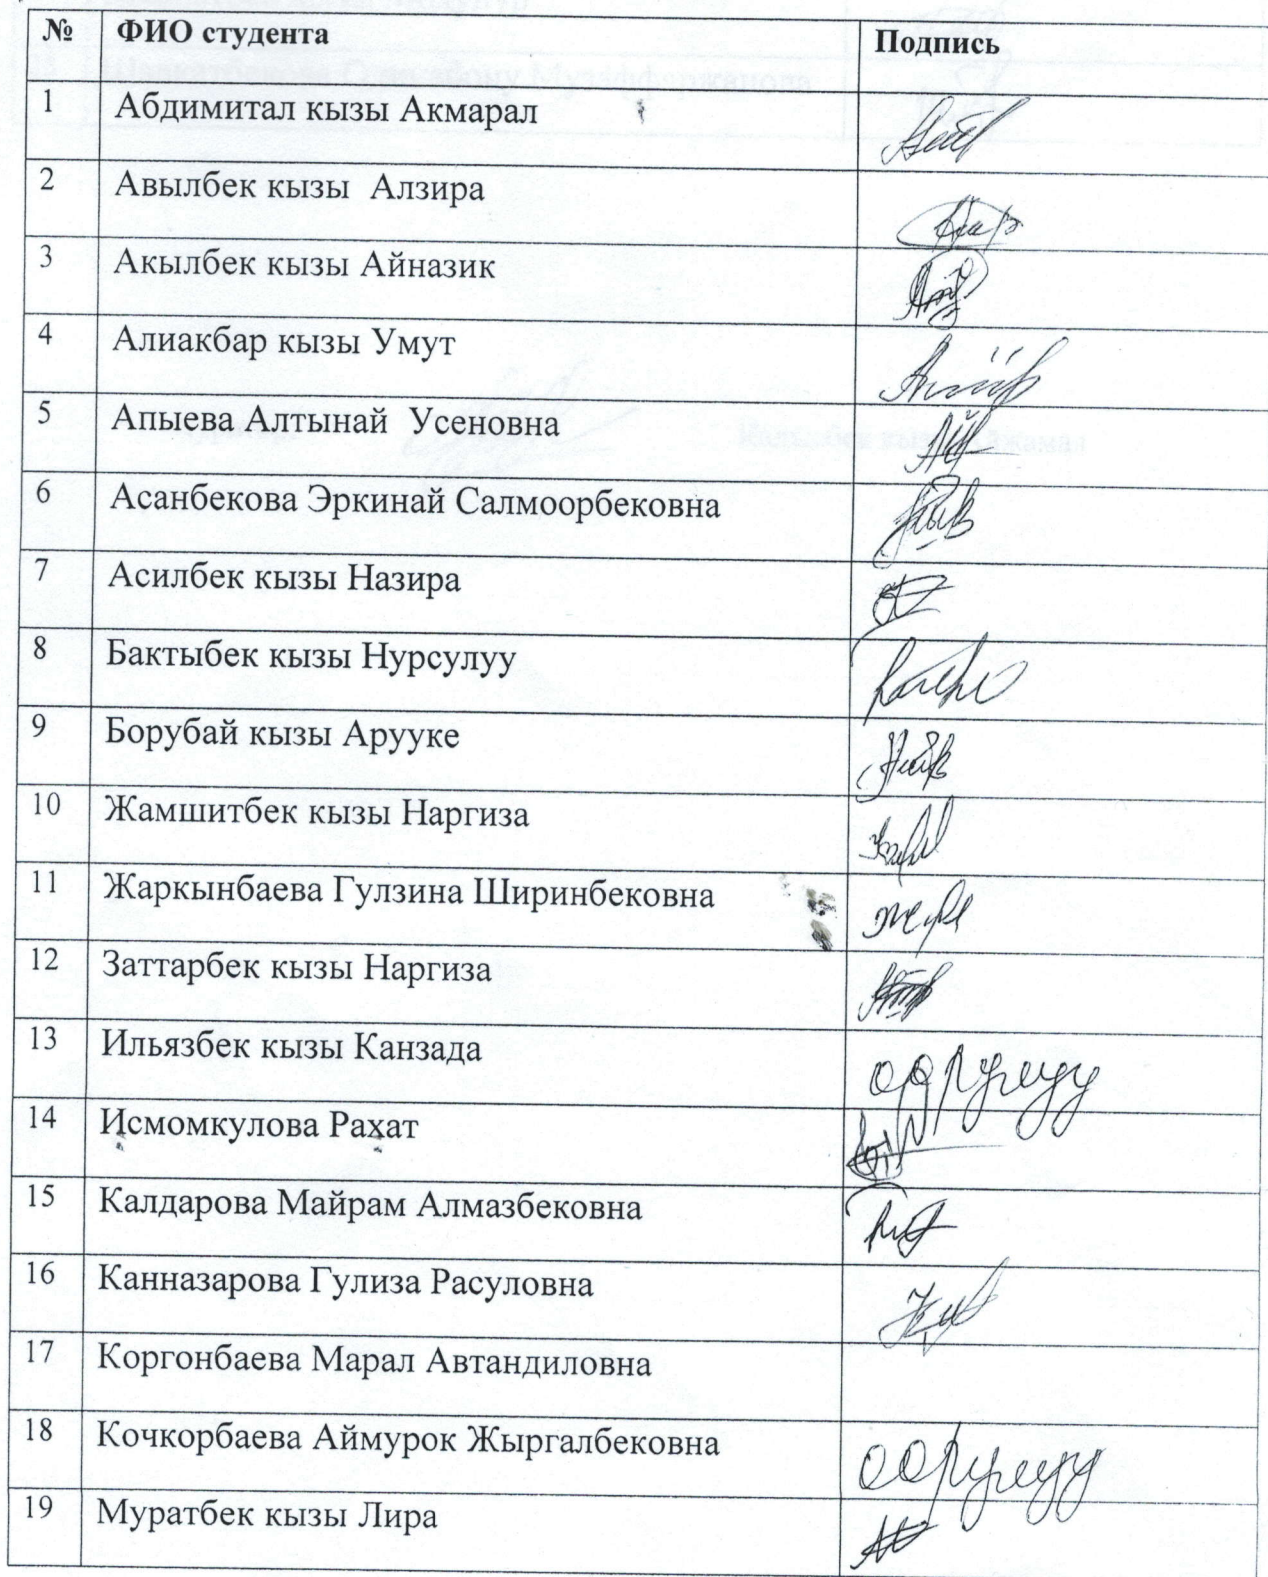 № ФИО студента Подпись
1 Абдимитал кызы Акмарал
2 Авылбек кызы Алзира
3 Акылбек кызы Айназик
4 Алиакбар кызы Умут
5 Апыева Алтынай Усеновна
6 Асанбекова Эркинай Салмоорбековна
7 Асилбек кызы Назира
8 Бактыбек кызы Нурсулуу
9 Борубай кызы Арууке
10 Жамшитбек кызы Наргиза
11 Жаркынбаева Гулзина Ширинбековна
12 Заттарбек кызы Наргиза
13 Ильязбек кызы Канзада оорулуу
14 Исмомкулова Рахат
15 Калдарова Майрам Алмазбековна
16 Канназарова Гулиза Расуловна
17 Коргонбаева Марал Автандиловна
18 Кочкорбаева Аймурок Жыргалбековна оорулуу
19 Муратбек кызы Лира